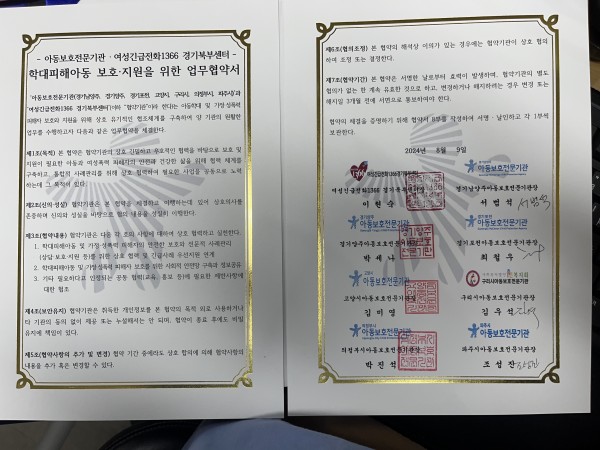 - 아동보호전문기관 · 여성긴급전화1366 경기북부센터 -
학대피해아동 보호·지원을 위한 업무협약서
「아동보호전문기관(경기남양주, 경기양주, 경기포천, 고양시, 구리시, 의정부시, 파주시)과
여성긴급전화1366 경기북부센터」
피해자 보호와 지원을 위해 상호 유기적인 협조체계를 구축하여 양 기관의 원활한
업무를 수행하고자 다음과 같은 업무협약을 체결한다.
제1조(목적) 본 협약은 협약기관의 상호 긴밀하고 우호적인 협력을 바탕으로 보호 및
지원이 필요한 아동과 여성폭력 피해자의 안전과 건강한 삶을 위해 협력 체계를
구축하고, 통합적 사례관리를 위해 상호 협력하여 필요한 사업을 공동으로 노력
하는데 그 목적이 있다.
제2조(신의·성실) 협약기관은 본 협약을 체결하고 이행하는데 있어 상호의사를
존중하며 신의와 성실을 바탕으로 협의 내용을 성실히 이행한다.
제3조(협약내용) 협약기관은 다음 각 호의 사항에 대하여 상호 협력하고 실천한다.
1. 학대피해아동 및 가정·성폭력 피해자의 안전한 보호와 전문적 사례관리
(상담·보호·지원 등)를 위한 상호 협력 및 긴급사례 우선지원 연계
2. 학대피해아동 및 가정·성폭력 피해자 보호를 위한 사회적 안전망 구축과 정보공유
3. 기타 필요하다고 인정되는 공동 협력(교육, 홍보 등)에 필요한 제반사항에
대한 협조
제4조(보안유지) 협약기관은 취득한 개인정보를 본 협약의 목적 외로 사용하거나
타 기관의 동의 없이 제공 또는 누설해서는 안 되며, 협약이 종료 후에도 비밀
유지에 책임이 있다.
제5조(협약사항의 추가 및 변경) 협약 기간 중에라도 상호 합의에 의해 협약사항의
내용을 추가 혹은 변경할 수 있다.
제6조(협의조정) 본 협약의 해석상 이의가 있는 경우에는 협약기관이 상호 협의
하여 조정 또는 결정한다.
제7조(협약기간) 본 협약은 서명한 날로부터 효력이 발생하며, 협약기관의 별도
협의가 없는 한 계속 유효한 것으로 하고, 변경하거나 해지하려는 경우 변경 또는
해지일 3개월 전에 서면으로 통보하여야 한다.
협약의 체결을 증명하기 위해 협약서 8부를 작성하여 서명·날인하고 각 1부씩
보관한다.
2024년 8월 9일
여성긴급전화1366경기북부센터
아동보호전문기관
여성긴급전화1366 경기북부센터장
경기남양주아동보호전문기관장
이 원 순
서 범 석
아동보호전문기관
아동보호전문기관
경기양주아동보호전문기관장
경기포천아동보호전문기관장
박 세 나
최 철 우
고양시
아동보호전문기관
구리시아동보호전문기관
고양시아동보호전문기관장
구리시아동보호전문기관장
김 미 영
김 우 석
의정부시
아동보호전문기관
파주시
아동보호전문기관
의정부시아동보호전문기관장
파주시아동보호전문기관장
박 진 석
조 성 잔